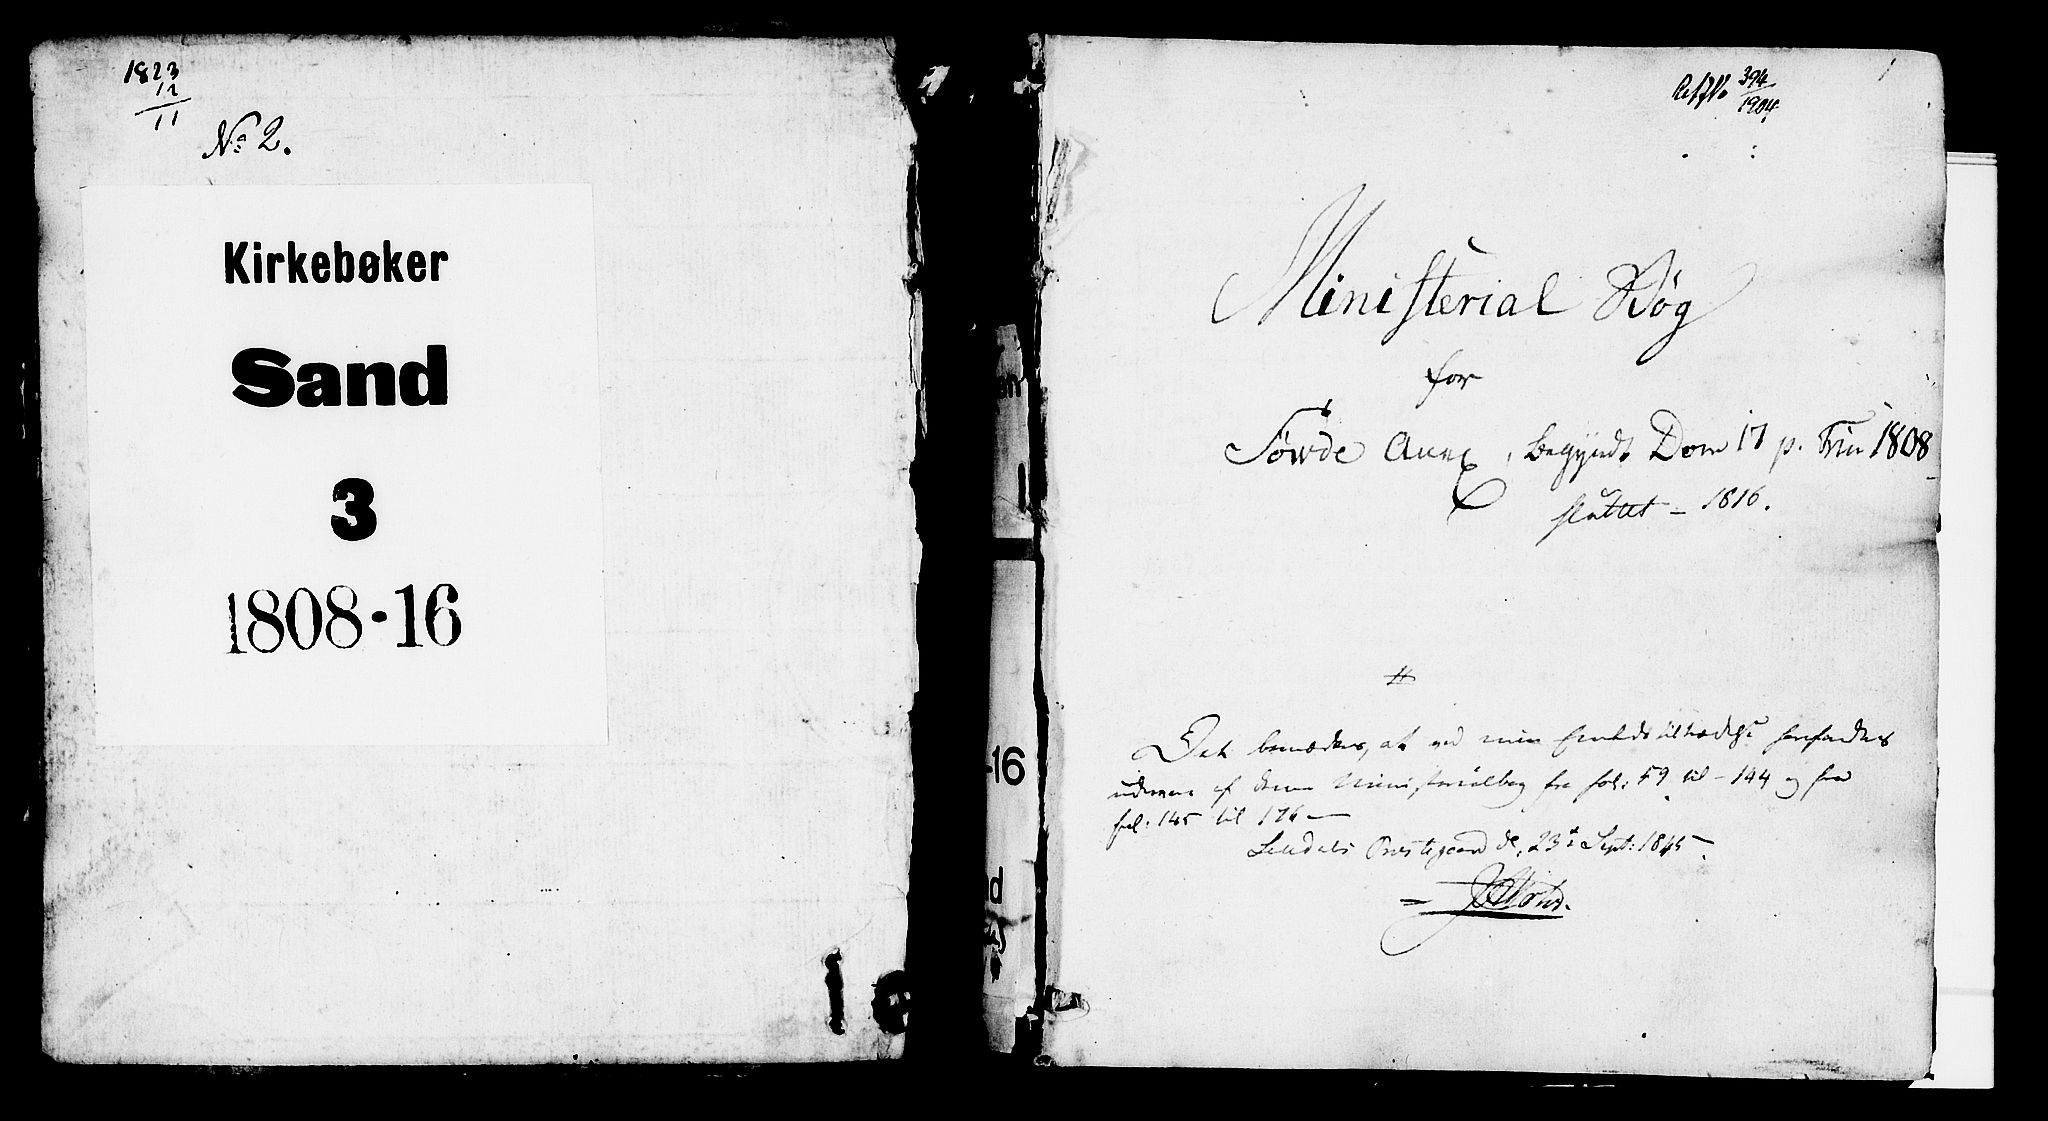 1823
12
11
No 2.
Kirkebøker
Sand
3
1808-16
1
394
1904
Ministerial Bog
for
Søvde Anex, Begyndt Dom 17 p. Trin 1808
sluttet - 1816.
Det bemærkes, at ved min Embedstiltrædelse
af denne Ministerialbog fra fol: 59 til - 144 og fra
fol: 145 til 176 -
Præstegaard d. 23d Sept: 1845
n
-16
d